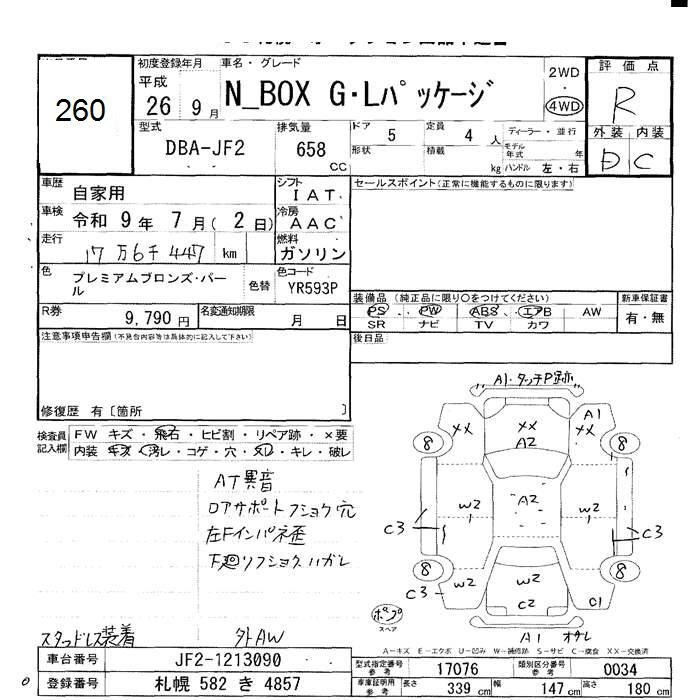 260
初度登録年月
平成
26 9 月
車名・グレード
N_BOX G・Lパッケージ
2WD
・
4WD
評価点
R
外装 内装
D C
型式
DBA-JF2
排気量
658
CC
ドア 5
形状
定員 4 人
積載 kg
ディーラー・並行
モデル年式 年
ハンドル 左・右
車歴 自家用
車検 令和 9 年 7 月 ( 2 日)
走行 17 万 6千 447 km
シフト
IAT
冷房
AAC
燃料
ガソリン
セールスポイント(正常に機能するものに限ります)
色 プレミアムブロンズ・パール
色替
色コード
YR593P
R券 9,790 円
名変通知期限 月 日
装備品 (純正品に限り○をつけてください)
PS PW ABS エアB AW
SR ナビ TV カワ
新車保証書
有・無
注意事項申告欄(不具合内容等は具体的に記入して下さい)
後日品
修復歴 有〔箇所 〕
検査員記入欄
FW キズ・飛石・ヒビ割・リペア跡・×要
内装 キズ・汚レ・コゲ・穴・スレ・キレ・破レ
AT異音
ロアサポートフショク穴
左Fインパネ歪
下廻リフショクハガレ
スタッドレス装着
外AW
A1・タッチP跡
XX
XX
A1
XX
A2
8
8
W2
A2
W2
C3
C3
8
8
C3
W2
W2
W2
C2
C1
A1 オサレ
ポンプ
スペア
A-キズ E-エクボ U-凹み W-補修跡 S-サビ C-腐食 XX-交換済
車台番号 JF2-1213090
登録番号 札幌 582 き 4857
型式指定番号
参考
17076
類別区分番号
参考
0034
車庫証明用
参考
長さ 339 cm 幅 147 cm 高さ 180 cm